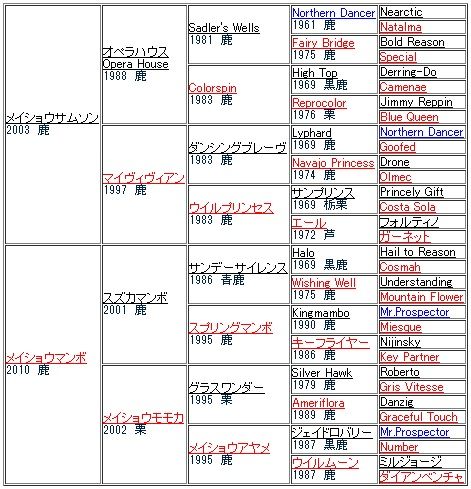 メイショウサムソン
2003 鹿
オペラハウス
Opera House
1988 鹿
Sadler's Wells
1981 鹿
Northern Dancer
1961 鹿
Nearctic
Natalma
Fairy Bridge
1975 鹿
Bold Reason
Special
Colorspin
1983 鹿
High Top
1969 黒鹿
Derring-Do
Camenae
Reprocolor
1976 栗
Jimmy Reppin
Blue Queen
マイヴィヴィアン
1997 鹿
ダンシングブレーヴ
1983 鹿
Lyphard
1969 鹿
Northern Dancer
Goofed
Navajo Princess
1974 鹿
Drone
Olmec
ウイルプリンセス
1983 鹿
サンプリンス
1969 栃栗
Princely Gift
Costa Sola
エール
1972 芦
フォルティノ
ガーネット
メイショウマンボ
2010 鹿
スズカマンボ
2001 鹿
サンデーサイレンス
1986 青鹿
Halo
1969 黒鹿
Hail to Reason
Cosmah
Wishing Well
1975 鹿
Understanding
Mountain Flower
スプリングマンボ
1995 鹿
Kingmambo
1990 鹿
Mr.Prospector
Miesque
キーフライヤー
1986 鹿
Nijinsky
Key Partner
メイショウモモカ
2002 栗
グラスワンダー
1995 栗
Silver Hawk
1979 鹿
Roberto
Gris Vitesse
Ameriflora
1989 鹿
Danzig
Graceful Touch
メイショウアヤメ
1995 鹿
ジェイドロバリー
1987 黒鹿
Mr.Prospector
Number
ウイルムーン
1987 鹿
ミルジョージ
ダイアンベンチャ